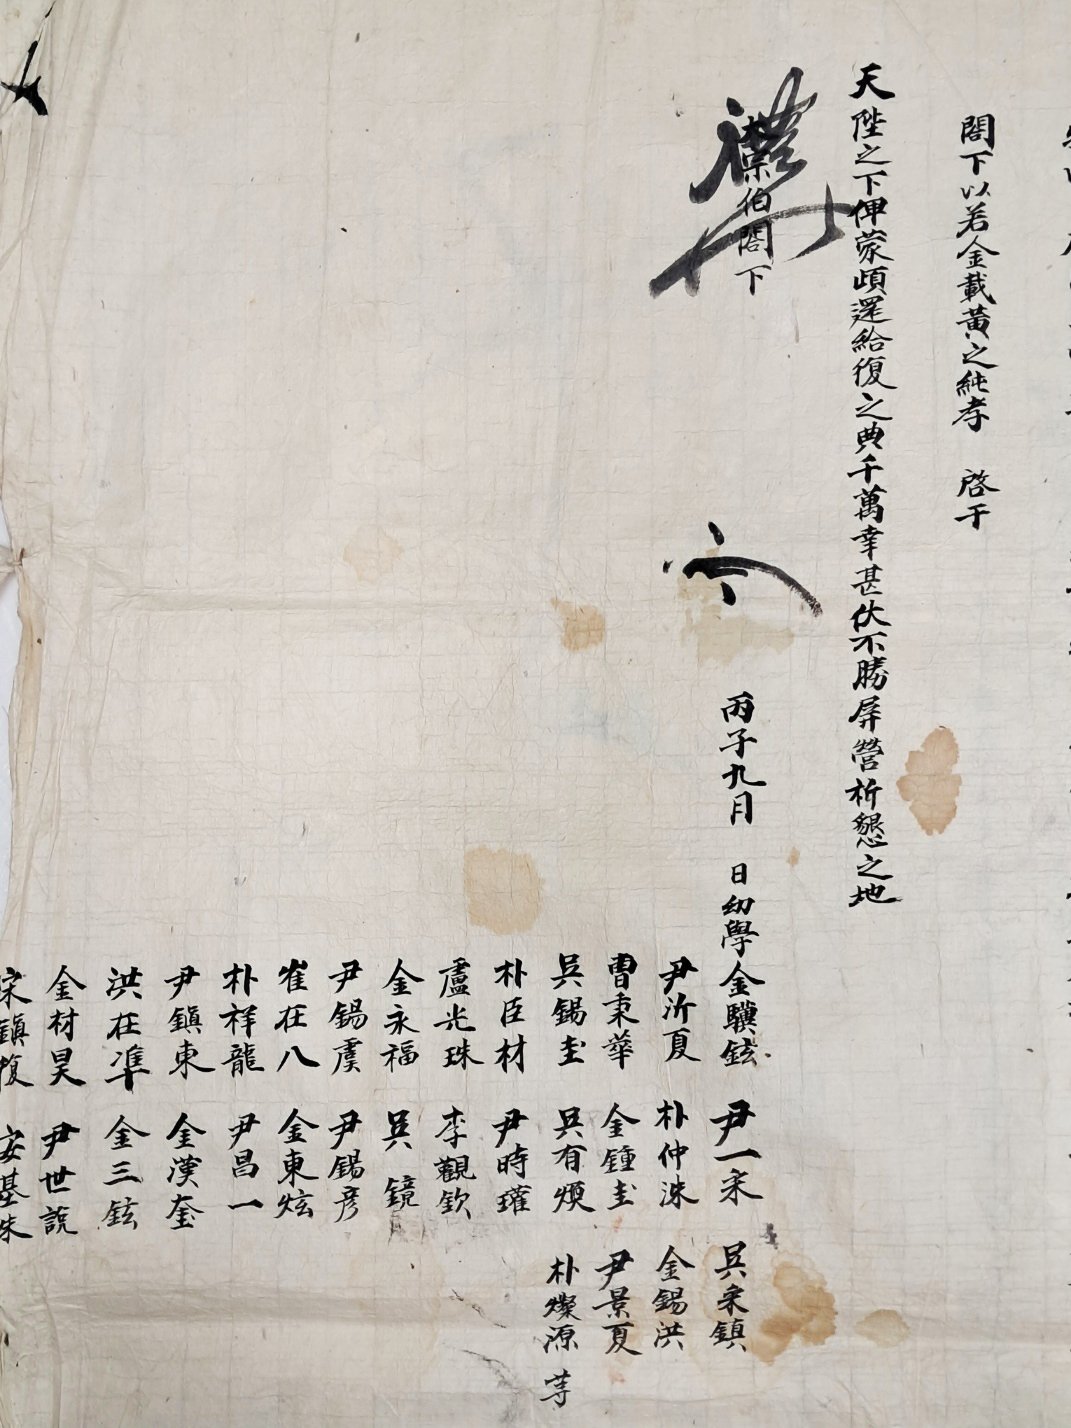 閤下以若金載黃之純孝 啓于
天陛之下俾蒙頉還給復之典千萬幸甚伏不勝屏營祈懇之地
宗伯閤下
丙子九月 日幼學金驥鉉 尹一采 吳采鎮
尹沂夏 朴仲洙 金錫洪
曹秉華 金鍾圭 尹景夏
吳錫圭 吳有煥 朴燦源 等
朴臣材 尹時瓘
盧光珠 李觀欽
金永福 吳鏡
尹錫虞 尹錫彥
崔在八 金東炫
朴祥龍 尹昌一
尹鎭東 金漢奎
洪在準 金三鉉
金材昊 尹世說
宋鎭復 安基洙